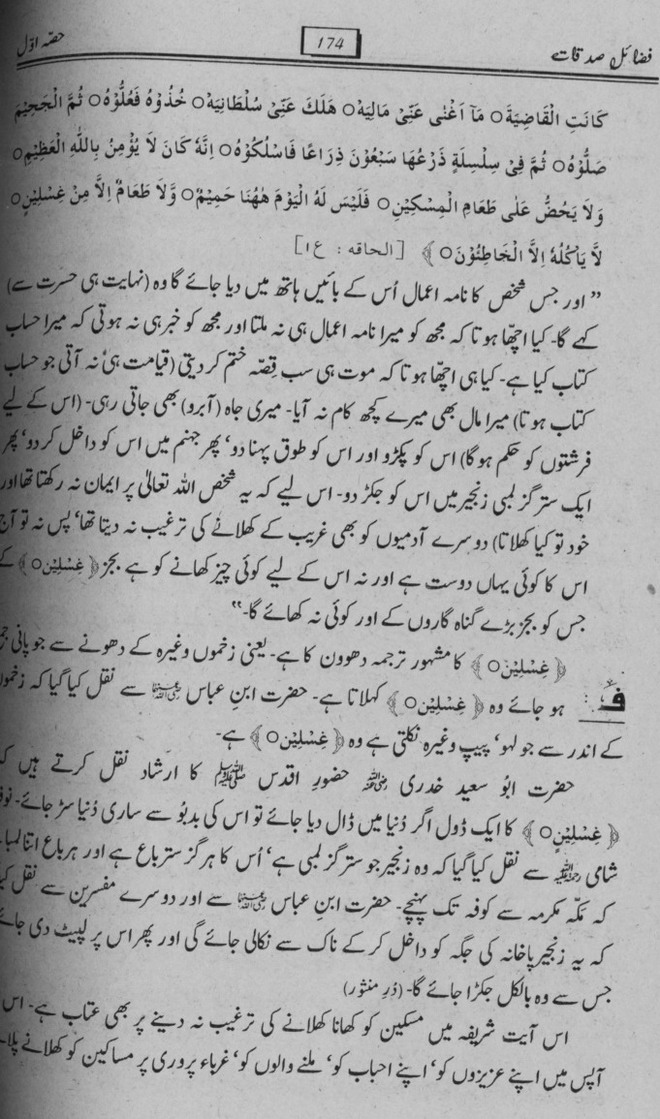 فضائل صدقات 174 حصّہ اوّل
كَانَتِ الْقَاضِيَةَ○ مَآ اَغْنٰى عَنِّىْ مَالِيَهْ○ هَلَكَ عَنِّىْ سُلْطَانِيَهْ○ خُذُوْهُ فَغُلُّوْهُ○ ثُمَّ الْجَحِيْمَ
صَلُّوْهُ○ ثُمَّ فِىْ سِلْسِلَةٍ ذَرْعُهَا سَبْعُوْنَ ذِرَاعًا فَاسْلُكُوْهُ○ اِنَّهٗ كَانَ لَا يُؤْمِنُ بِاللّٰهِ الْعَظِيْمِ○
وَلَا يَحُضُّ عَلٰى طَعَامِ الْمِسْكِيْنِ○ فَلَيْسَ لَهُ الْيَوْمَ هٰهُنَا حَمِيْمٌ○ وَّلَا طَعَامٌ اِلَّا مِنْ غِسْلِيْنٍ○
لَّا يَاْكُلُهٗ اِلَّا الْخَاطِئُوْنَ○ ﴾ [الحاقہ : ع۱]
” اور جس شخص کا نامہ اعمال اُس کے بائیں ہاتھ میں دیا جائے گا وہ (نہایت ہی حسرت سے)
کہے گا۔ کیا اچھا ہوتا کہ مجھ کو میرا نامہ اعمال ہی نہ ملتا اور مجھ کو خبر ہی نہ ہوتی کہ میرا حساب
کتاب کیا ہے۔ کیا ہی اچھا ہوتا کہ موت ہی سب قصّہ ختم کر دیتی (قیامت ہی نہ آتی جو حساب
کتاب ہوتا) میرا مال بھی میرے کچھ کام نہ آیا۔ میری جاہ (آبرو) بھی جاتی رہی۔ (اس کے لیے
فرشتوں کو حکم ہوگا) اس کو پکڑو اور اس کو طوق پہنا دو‘ پھر جہنم میں اس کو داخل کر دو‘ پھر
ایک ستر گز لمبی زنجیر میں اس کو جکڑ دو۔ اس لیے کہ یہ شخص اللہ تعالیٰ پر ایمان نہ رکھتا تھا اور
خود تو کیا کھلاتا) دوسرے آدمیوں کو بھی غریب کے کھلانے کی ترغیب نہ دیتا تھا‘ پس نہ تو آج
اس کا کوئی یہاں دوست ہے اور نہ اس کے لیے کوئی چیز کھانے کو ہے بجز ﴿ غِسْلِيْن○ ﴾ کے
جس کو بجز بڑے گناہ گاروں کے اور کوئی نہ کھائے گا۔“
﴿ غِسْلِيْن○ ﴾ کا مشہور ترجمہ دھوون کا ہے۔ یعنی زخموں وغیرہ کے دھونے سے جو پانی
ف : ہو جائے وہ ﴿ غِسْلِيْن○ ﴾ کہلاتا ہے۔ حضرت ابنِ عباس رضی اللہ عنہما سے نقل کیا گیا کہ زخموں
کے اندر سے جو لہو‘ پیپ وغیرہ نکلتی ہے وہ ﴿ غِسْلِيْن○ ﴾ ہے۔
حضرت ابُو سعید خدری رضی اللہ عنہ حضورِ اقدس ﷺ کا ارشاد نقل کرتے ہیں کہ
﴿ غِسْلِيْنٍ○ ﴾ کا ایک ڈول اگر دُنیا میں ڈال دیا جائے تو اس کی بدبُو سے ساری دُنیا سڑ جائے۔ نوف
شامی سے نقل کیا گیا کہ وہ زنجیر جو ستر گز لمبی ہے‘ اُس کا ہر گز ستر باع ہے اور ہر باع اتنا لمبا
کہ مکّہ مکرمہ سے کوفہ تک پہنچے۔ حضرت ابنِ عباس رضی اللہ عنہما سے اور دوسرے مفسرین سے نقل کیا
کہ یہ زنجیر پاخانہ کی جگہ کو داخل کر کے ناک سے نکالی جائے گی اور پھر اس پر لپیٹ دی جائے
جس سے وہ بالکل جکڑا جائے گا۔ (دُرِ منثور)
اس آیت شریفہ میں مسکین کو کھانا کھلانے کی ترغیب نہ دینے پر بھی عتاب ہے۔ اس
آپس میں اپنے عزیزوں کو‘ اپنے احباب کو‘ ملنے والوں کو‘ غرباء پروری پر مساکین کو کھلانے